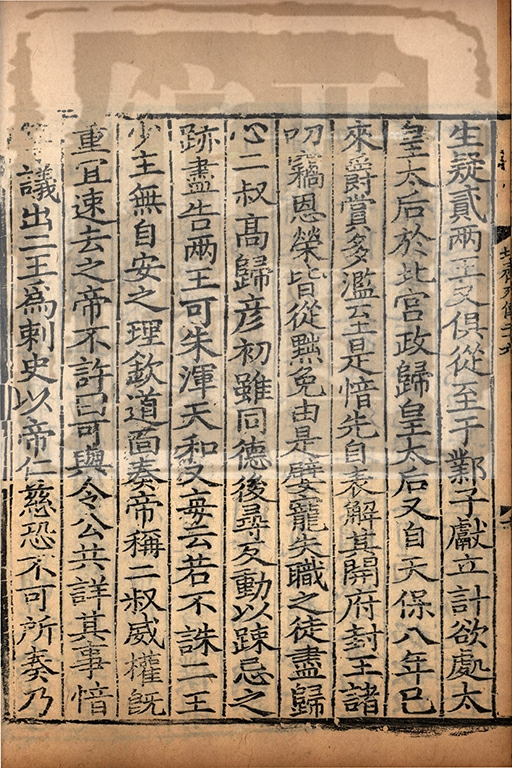 生疑貳兩王又俱從至于鄴子獻立計欲處太
皇太后於北宮政歸皇太后又自天保八年已
來爵賞多濫至是愔先自表解其開府封王諸
叨竊恩榮皆從黜免由是嬖寵失職之徒盡歸
心二叔高歸彦初雖同德後尋反動以踈忌之
跡盡告兩王可朱渾天和又每云若不誅二王
少主無自安之理欽道面奏帝稱二叔威權旣
重宜速去之帝不許曰可與令公共詳其事愔
議出二王爲刺史以帝仁慈恐不可所奏乃